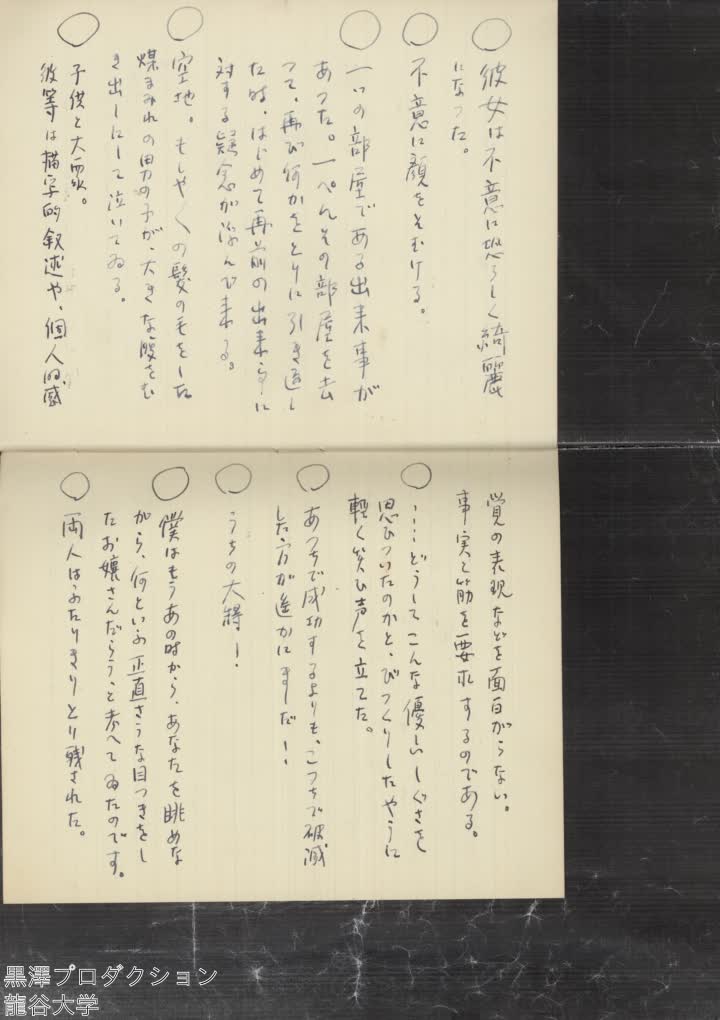 ○ 彼女は不意に恐ろしく綺麗
になつた。
○ 不意に顔をそむける。
○ 一つの部屋である出来事が
あつた。一ぺんその部屋を去
つて、再び何かをとりに引き返し
た時、はじめて再前の出来事に
対する疑念が浮んで来る。
○ 空地。もしやくの髪の毛をした
煤まみれの男の子が、大きな腹をむ
き出しにして泣いてゐる。
○ 子供と大衆。
彼等は描写的叙述や、個人的感
覚の表現などを面白がらない。
事実と筋を要求するのである。
○ ……どうしてこんな優しいしぐさを
思ひついたのかと、びつくりしたやうに
軽く笑ひ声を立てた。
○ あつちで成功するよりも、こつちで破滅
した方が遙かにましだ!!
○ うちの大将!
○ 僕はもうあの時から、あなたを眺めな
がら、何といふ正直さうな目つきをし
たお嬢さんだらう、と考へてゐたのです。
○ 両人はふたりきりとり残された。
黒澤プロダクション
龍谷大学